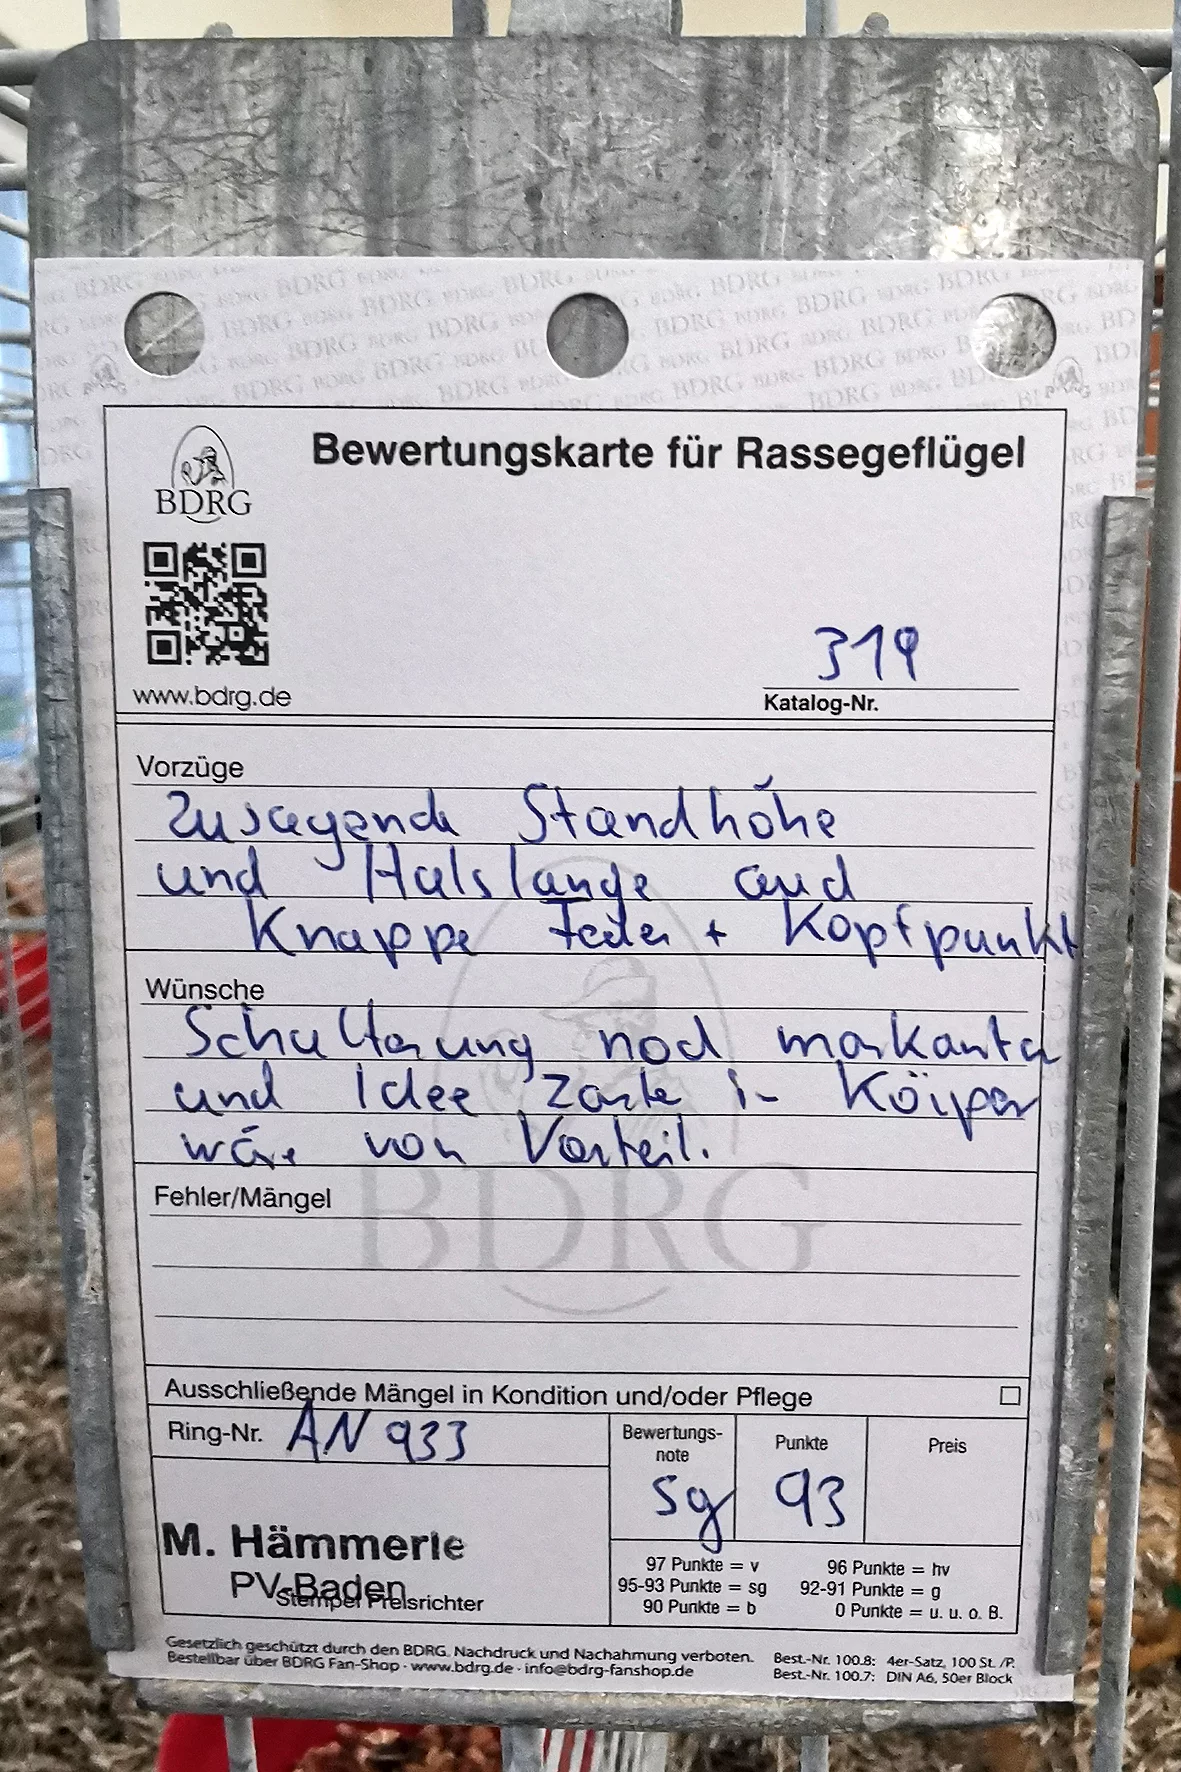 Bewertungskarte für Rassegeflügel
BDRG
www.bdrg.de
319
Katalog-Nr.
Vorzüge
Zusagende Standhöhe
und Halslänge auch
Knappe Feder + Kopfpunkt
Wünsche
Schulterung noch markanter
und Idee zarter im Körper
wäre von Vorteil.
BDRG
Fehler/Mängel
Ausschließende Mängel in Kondition und/oder Pflege
Ring-Nr. AN 933
Bewertungs-
note
sg
Punkte
93
Preis
M. Hämmerle
PV-Baden
Stempel Preisrichter
97 Punkte = v 96 Punkte = hv
95-93 Punkte = sg 92-91 Punkte = g
90 Punkte = b 0 Punkte = u. u. o. B.
Gesetzlich geschützt durch den BDRG. Nachdruck und Nachahmung verboten. Best.-Nr. 100.8: 4er-Satz, 100 St. /P.
Bestellbar über BDRG Fan-Shop · www.bdrg.de · info@bdrg-fanshop.de Best.-Nr. 100.7: DIN A6, 50er Block